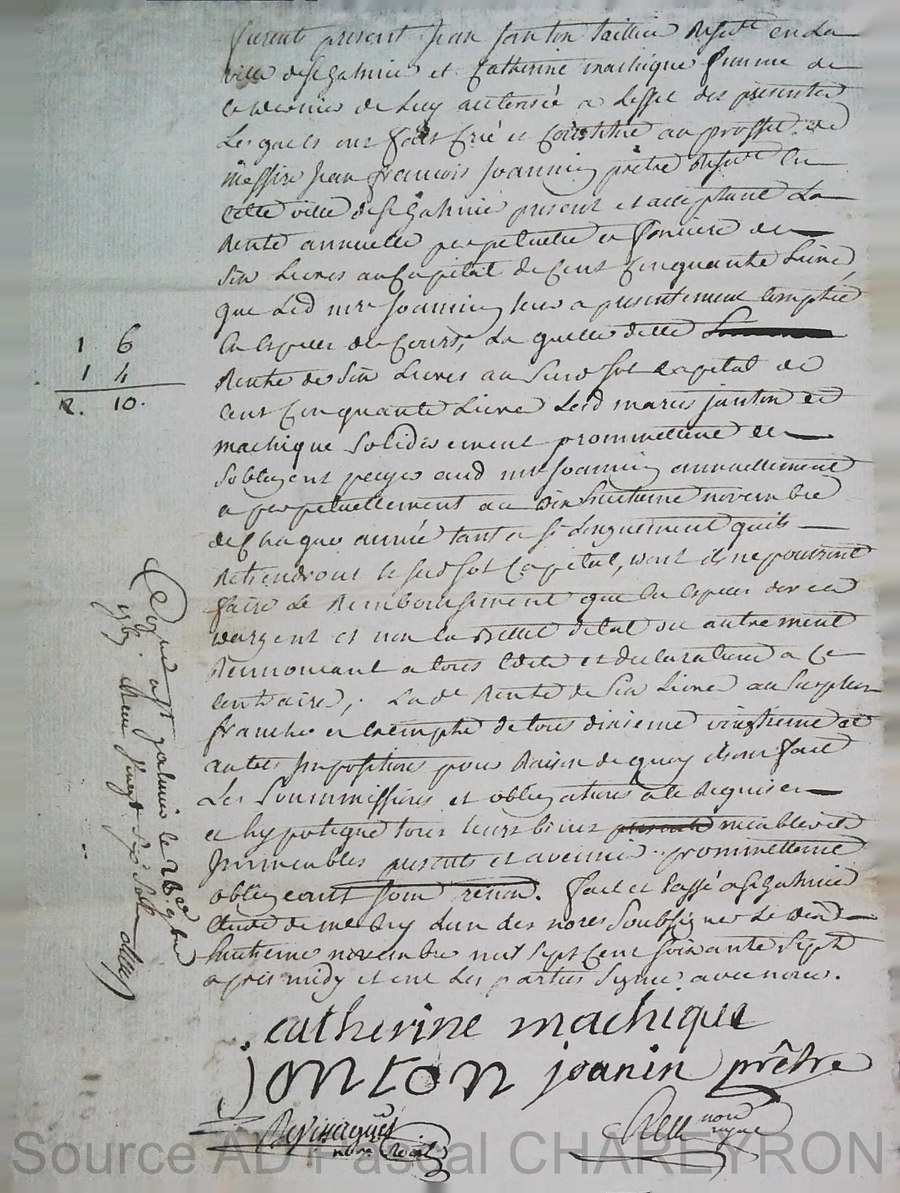 furent present Jean Jonton taillieur residt en la
ville de St Galmier et Catherine machique femme de
ce dernier de luy autorisée a leffet des presentes
Lesquels ont fait Créé et Constitué au proffit de
messire Jean francois Joannin prêtre residt en
cette ville de St Galmier present et acceptant La
Rente annuelle perpetuelle et fonciere de
six Livres au Capital de Cent Cinquante Livres
que Led mre Joannin leur a presentement Comptée
en especes de Cours, La quelle ditte
Rente de six Livres au susd sort capital de
Cent Cinquante Livres Lesd maries jonton et
machique solidairement promettent et
sobligent payer aud mre Joannin annuellement
et perpetuellement au vingthuitieme novembre
de Chaque année tant et si Longuement quils
Retiendront le susd sort Capital, dont ils ne pourront
faire Le Remboursement que en especes dor ou
dargent et non en Billet detat ou autrement
Rennoncant a tous Edits et declarations a Ce
Contraire, Lade Rente de six Livres au surplus
franche et Exempte de tous dixieme vingtieme et
autres Impositions pour Raison de quoy ils ont fait
Les Soummissions et obligations a ce Requises
et hypotequé tous leurs biens meubles et
Immeubles presents et avenir promettant
obligeant renon. fait et Passé a St Galmier
Etude de me Lun des nores Soubsignés Le vingt
huitieme novembre mil sept Cent soixante sept
apres midy et ont Les parties signé avec nores.
catherine machique
jonton joanin prêtre
nore Roial
nore royal
1 6
1 4
2. 10.
a St galmier le 28e 9bre
1767